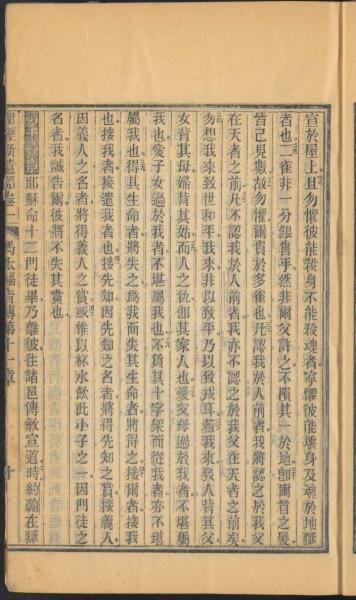 宣於屋上且勿懼彼能殺身不能殺魂者寧懼彼能壞身及魂於地獄
者也二雀非一分銀售乎然非爾父許之不隕其一於地即爾首之髮
皆已見數故勿懼爾貴於多雀也凡認我於人前者我將認之於我父
在天者之前凡不認我於人前者我亦不認之於我父在天者之前矣
勿想我來致世和平我來非以致平乃以致戎耳蓋我來致人背其父
女背其母婦背其姑而人之仇即其家人也愛父母過於我者不堪屬
我也愛子女過於我者不堪屬我也不負其十字架而從我者亦不堪
屬我也得其生命者將失之爲我而失其生命者將得之接爾者接我
也接我者接遣我者也接先知因先知之名者將得先知之賞接義人
因義人之名者將得義人之賞或惟以杯水飲此小子之一因門徒之
名者我誠告爾彼將不失其賞也
耶穌命十二門徒畢乃離彼往諸邑傳敎宣道時約翰在獄
聖經新遺詔卷一 馬太福音傳第十一章 十